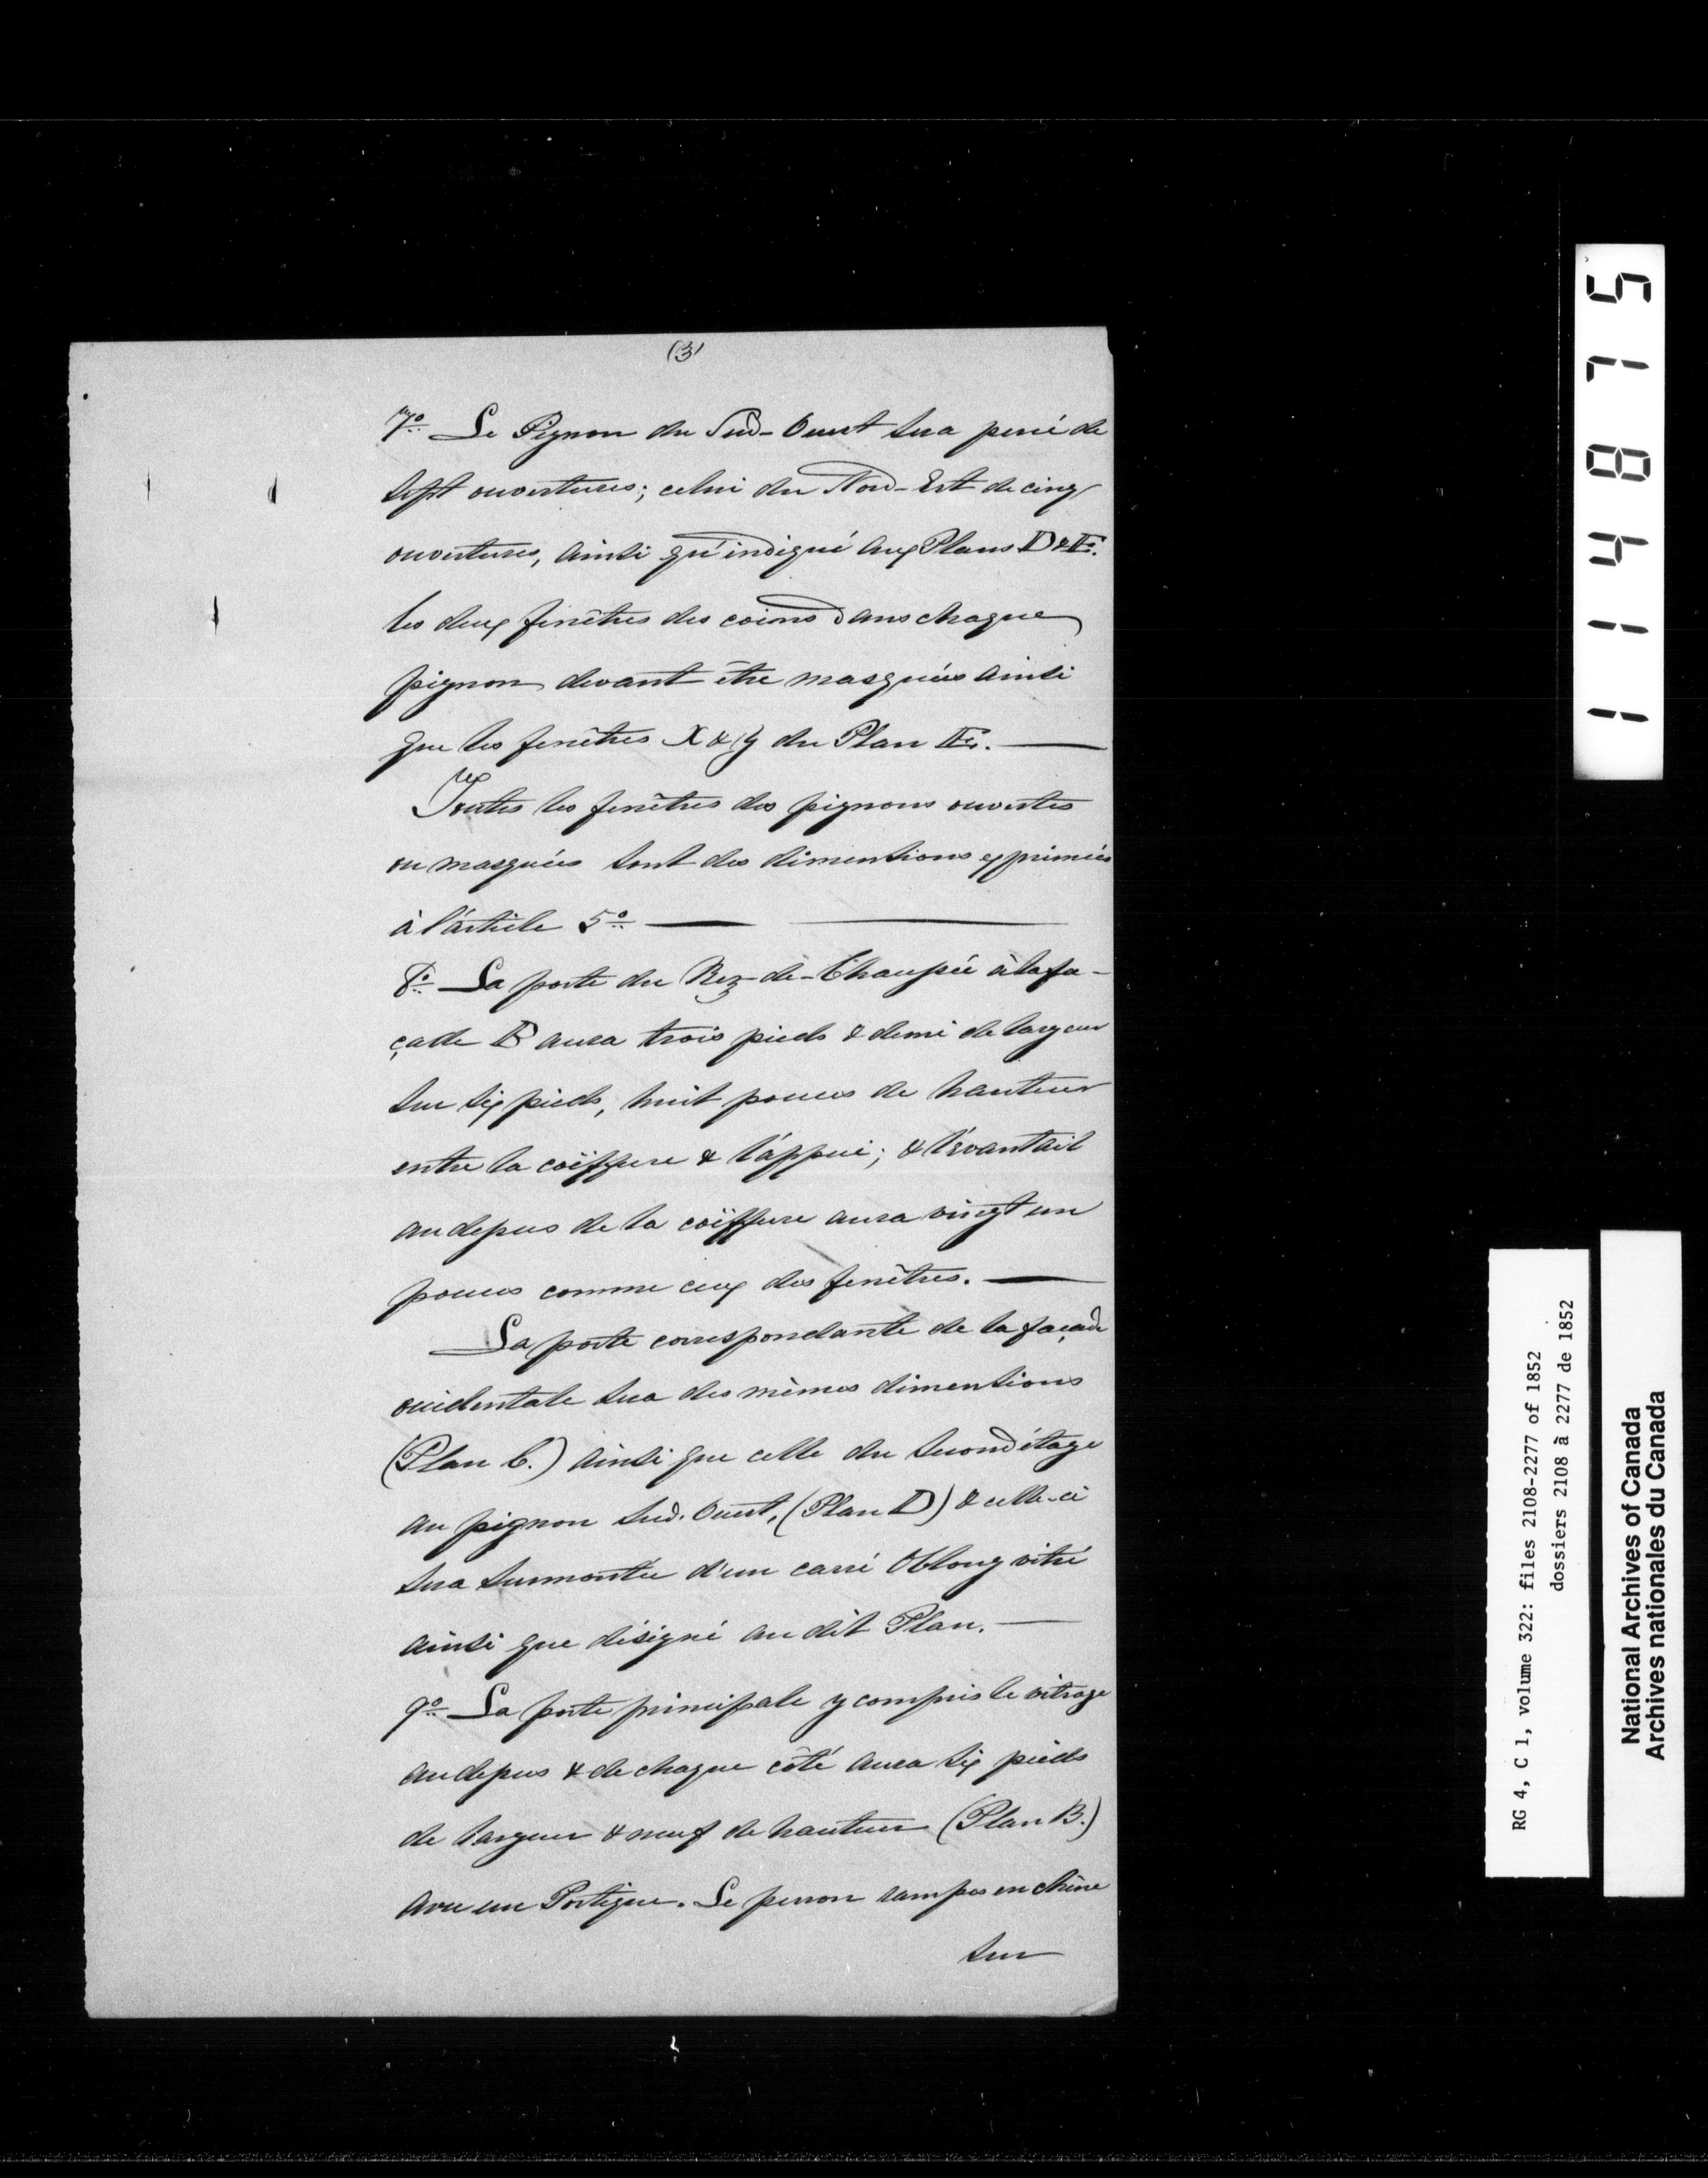 (3)
7º Le Pignon du Sud-Ouest sera percé de
sept ouvertures; celui du Nord-Est de cinq
ouvertures, ainsi qu'indiqué aux Plans D & E.
les deux fenêtres des coins dans chaque
pignon devant être masquées ainsi
que les fenêtres X & Y du Plan E.
Toutes les fenêtres des pignons ouvertes
ou masquées sont des dimentions exprimées
à l'article 5º
8º La porte du Rez-de-Chaussée à la fa-
çade B aura trois pieds & demi de largeur
sur six pieds, huit pouces de hauteur
entre la coiffure & l'appui; & l'évantail
au dessus de la coiffure aura vingt un
pouces comme ceux des fenêtres.
La porte correspondante de la façade
occidentale sera des mêmes dimentions
(Plan C.) ainsi que celle du second étage
au pignon Sud-Ouest, (Plan D) & celle-ci
sera surmontée d'un carré Oblong vitré
ainsi que désigné au dit Plan.
9º La porte principale y compris le vitrage
au dessus & de chaque côté aura six pieds
de largeur & neuf de hauteur (Plan B.)
avec un Portique. Le perron rampes en chêne
sur
114875
RG 4, C 1, volume 322: files 2108-2277 of 1852
dossiers 2108 à 2277 de 1852
National Archives of Canada
Archives nationales du Canada